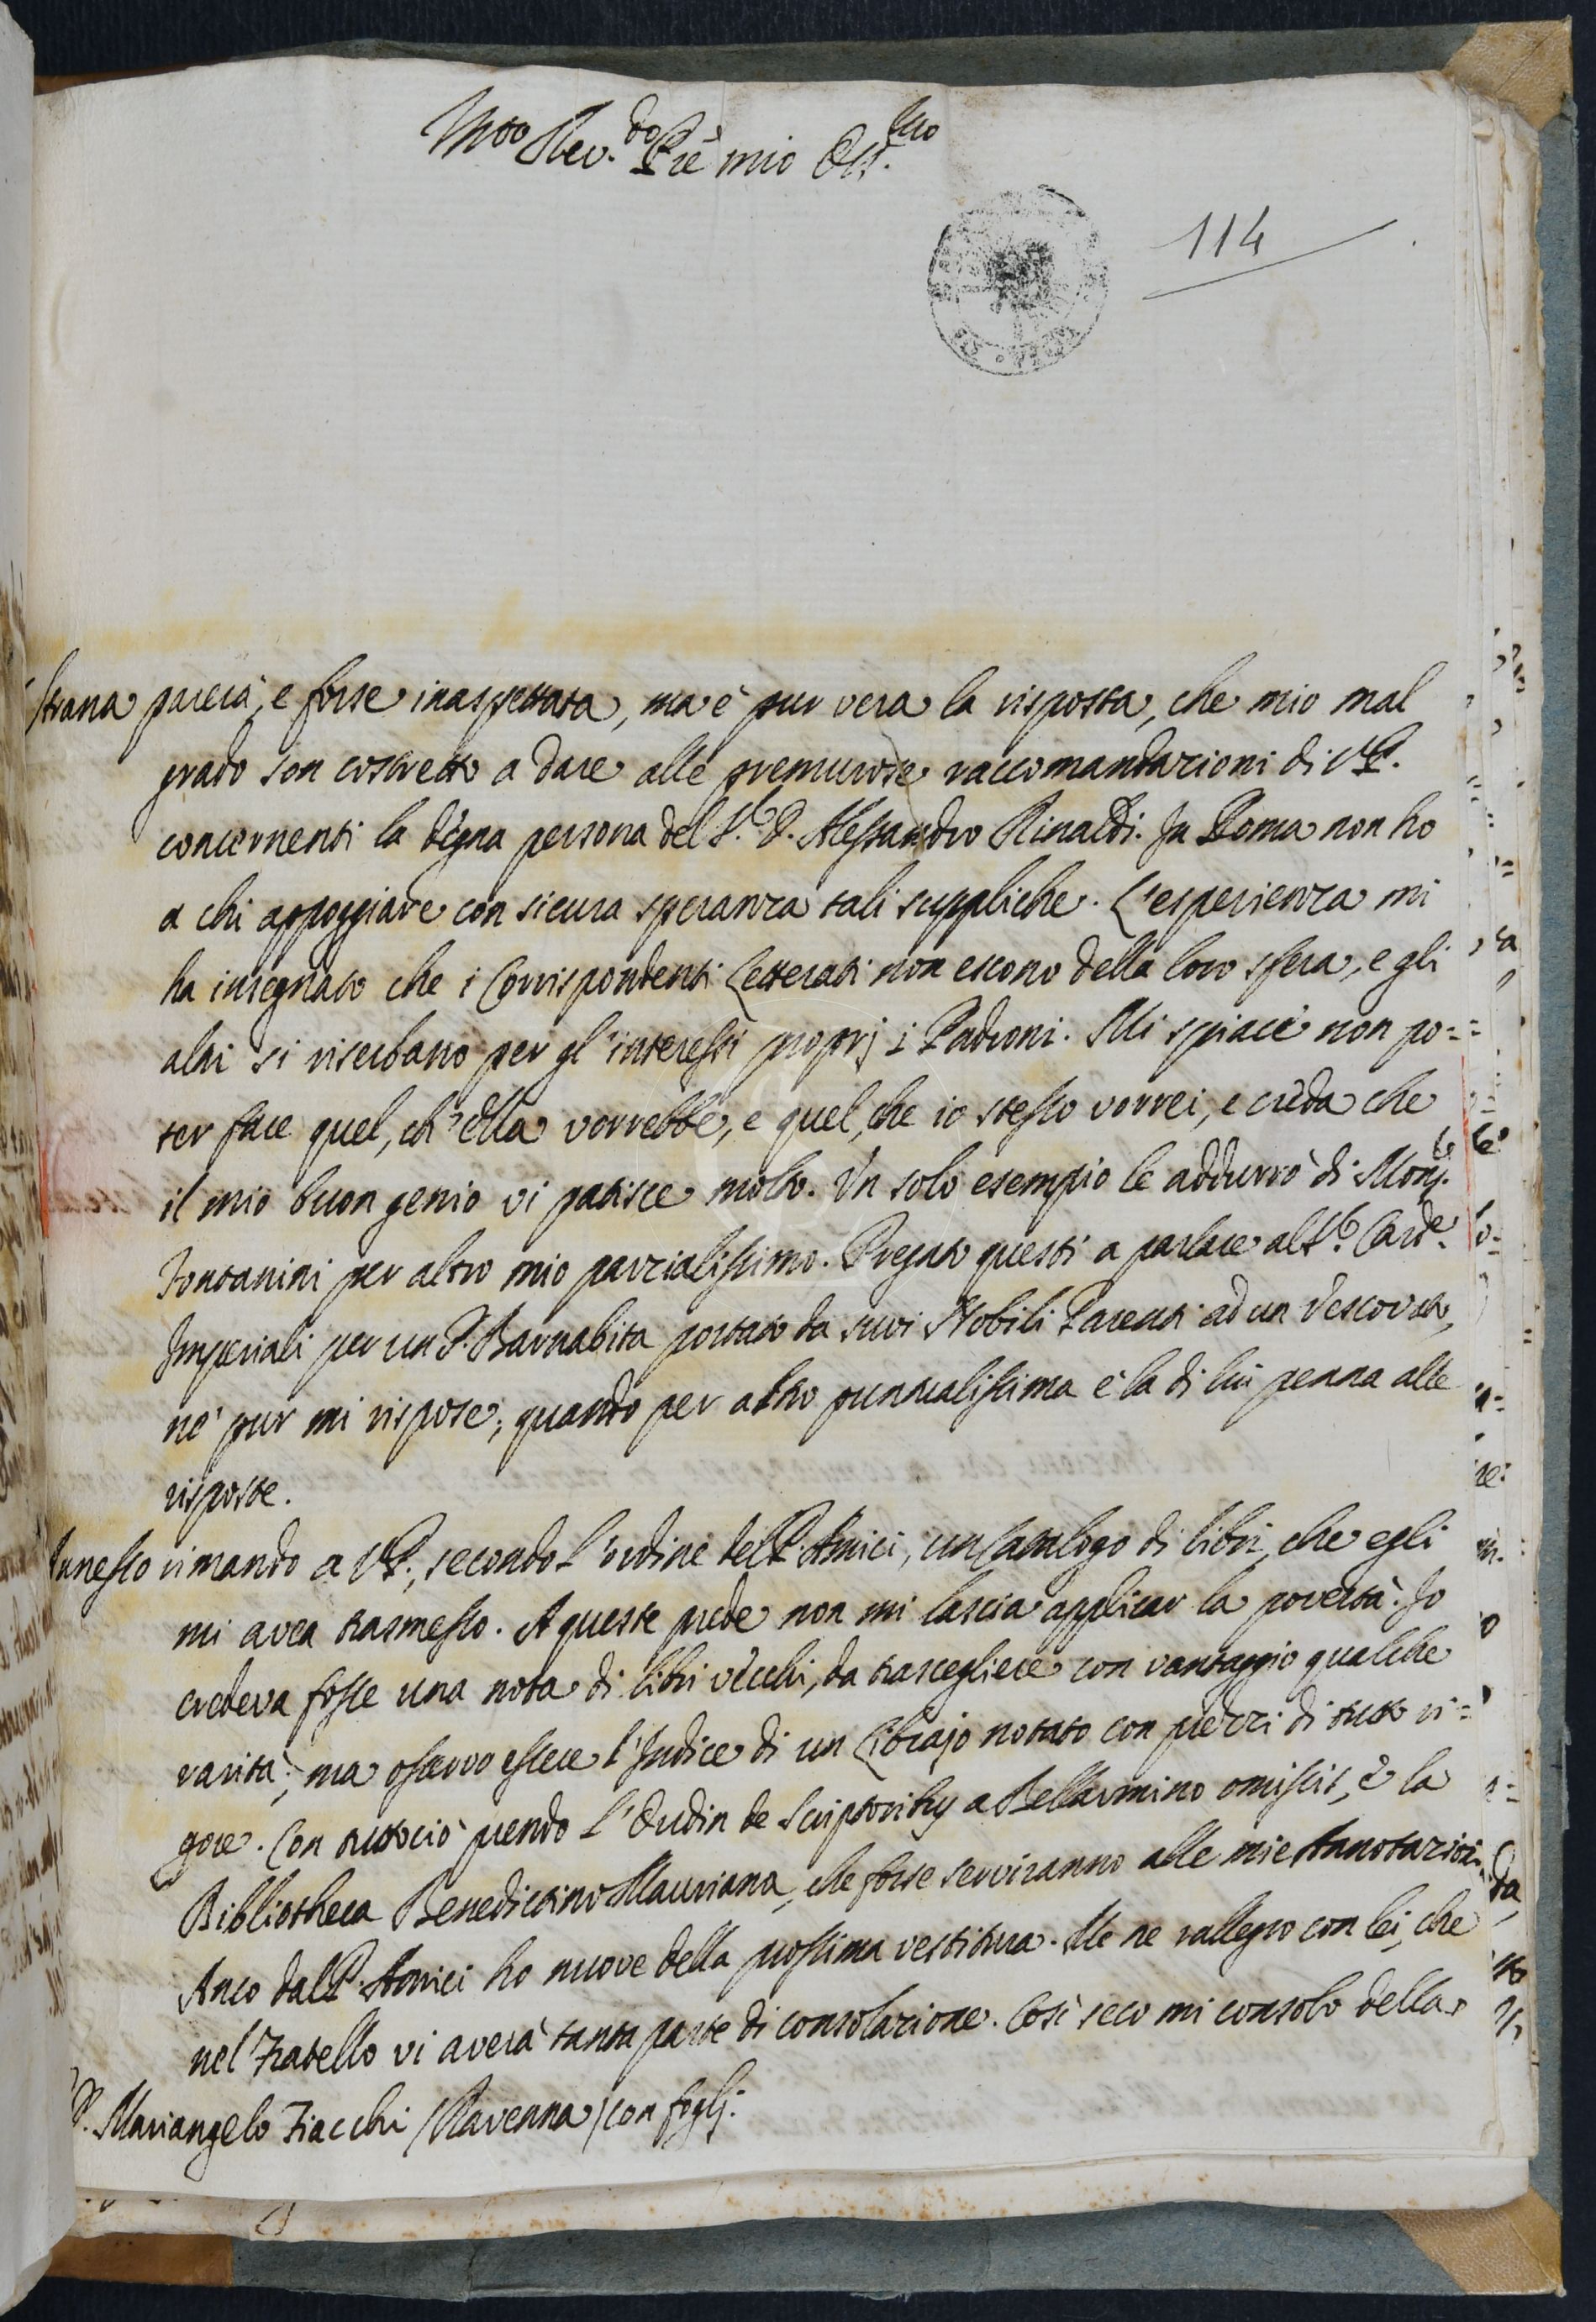 Mto Rev.do Prẽ mio Oss.mo
114
Strana parerà, e forse inaspettata, ma è pur vera la risposta, che mio mal
grado son costretto a dare alle premurose raccomandazioni di VP.
concernenti la degna persona del S.r D. Alessandro Rinaldi. In Roma non ho
a chi appoggiare con sicura speranza tali suppliche. L'esperienza mi
ha insegnato che i Corrispondenti Letterati non escono della loro sfera, e gli
altri si riserbano per gl'interessi proprj i Padroni. Mi spiace non po=
ter fare quel, ch'ella vorrebbe, e quel, che io stesso vorrei, e creda che
il mio buon genio vi patisce molto. Un solo esempio le addurrò di Mons.r
Fontanini per altro mio parzialissimo. Pregato questi a parlare al S.r Card.e
Imperiali per un P. Barnabita portato da suoi Nobili Parenti ad un Vescovato,
nè pur mi rispose; quando per altro puntualissima è la di lui penna alle
risposte.
Annesso rimando a VP., secondo l'ordine del P. Amici, un Catalogo di libri, che egli
mi avea trasmesso. A queste prede non mi lascia applicar la povertà. Io
credeva fosse una nota di libri vecchi, da trascegliere con vantaggio qualche
rarità; ma osservo essere l'Indice di un Librajo notato con prezzi di tutto ri=
gore. Con tuttociò prendo l'Oudin de Scriptoribus a Bellarmino omissis, e la
Bibliotheca Benedictino Mauriana, che forse serviranno alle mie Annotazioni.
Anco dal P. Amici ho nuove della prossima vestitura. Me ne rallegro con lei, che
nel Fratello vi averà tanta parte di consolazione. Così seco mi consolo della
P. Mariangelo Fiacchi (Ravenna) con foglj.